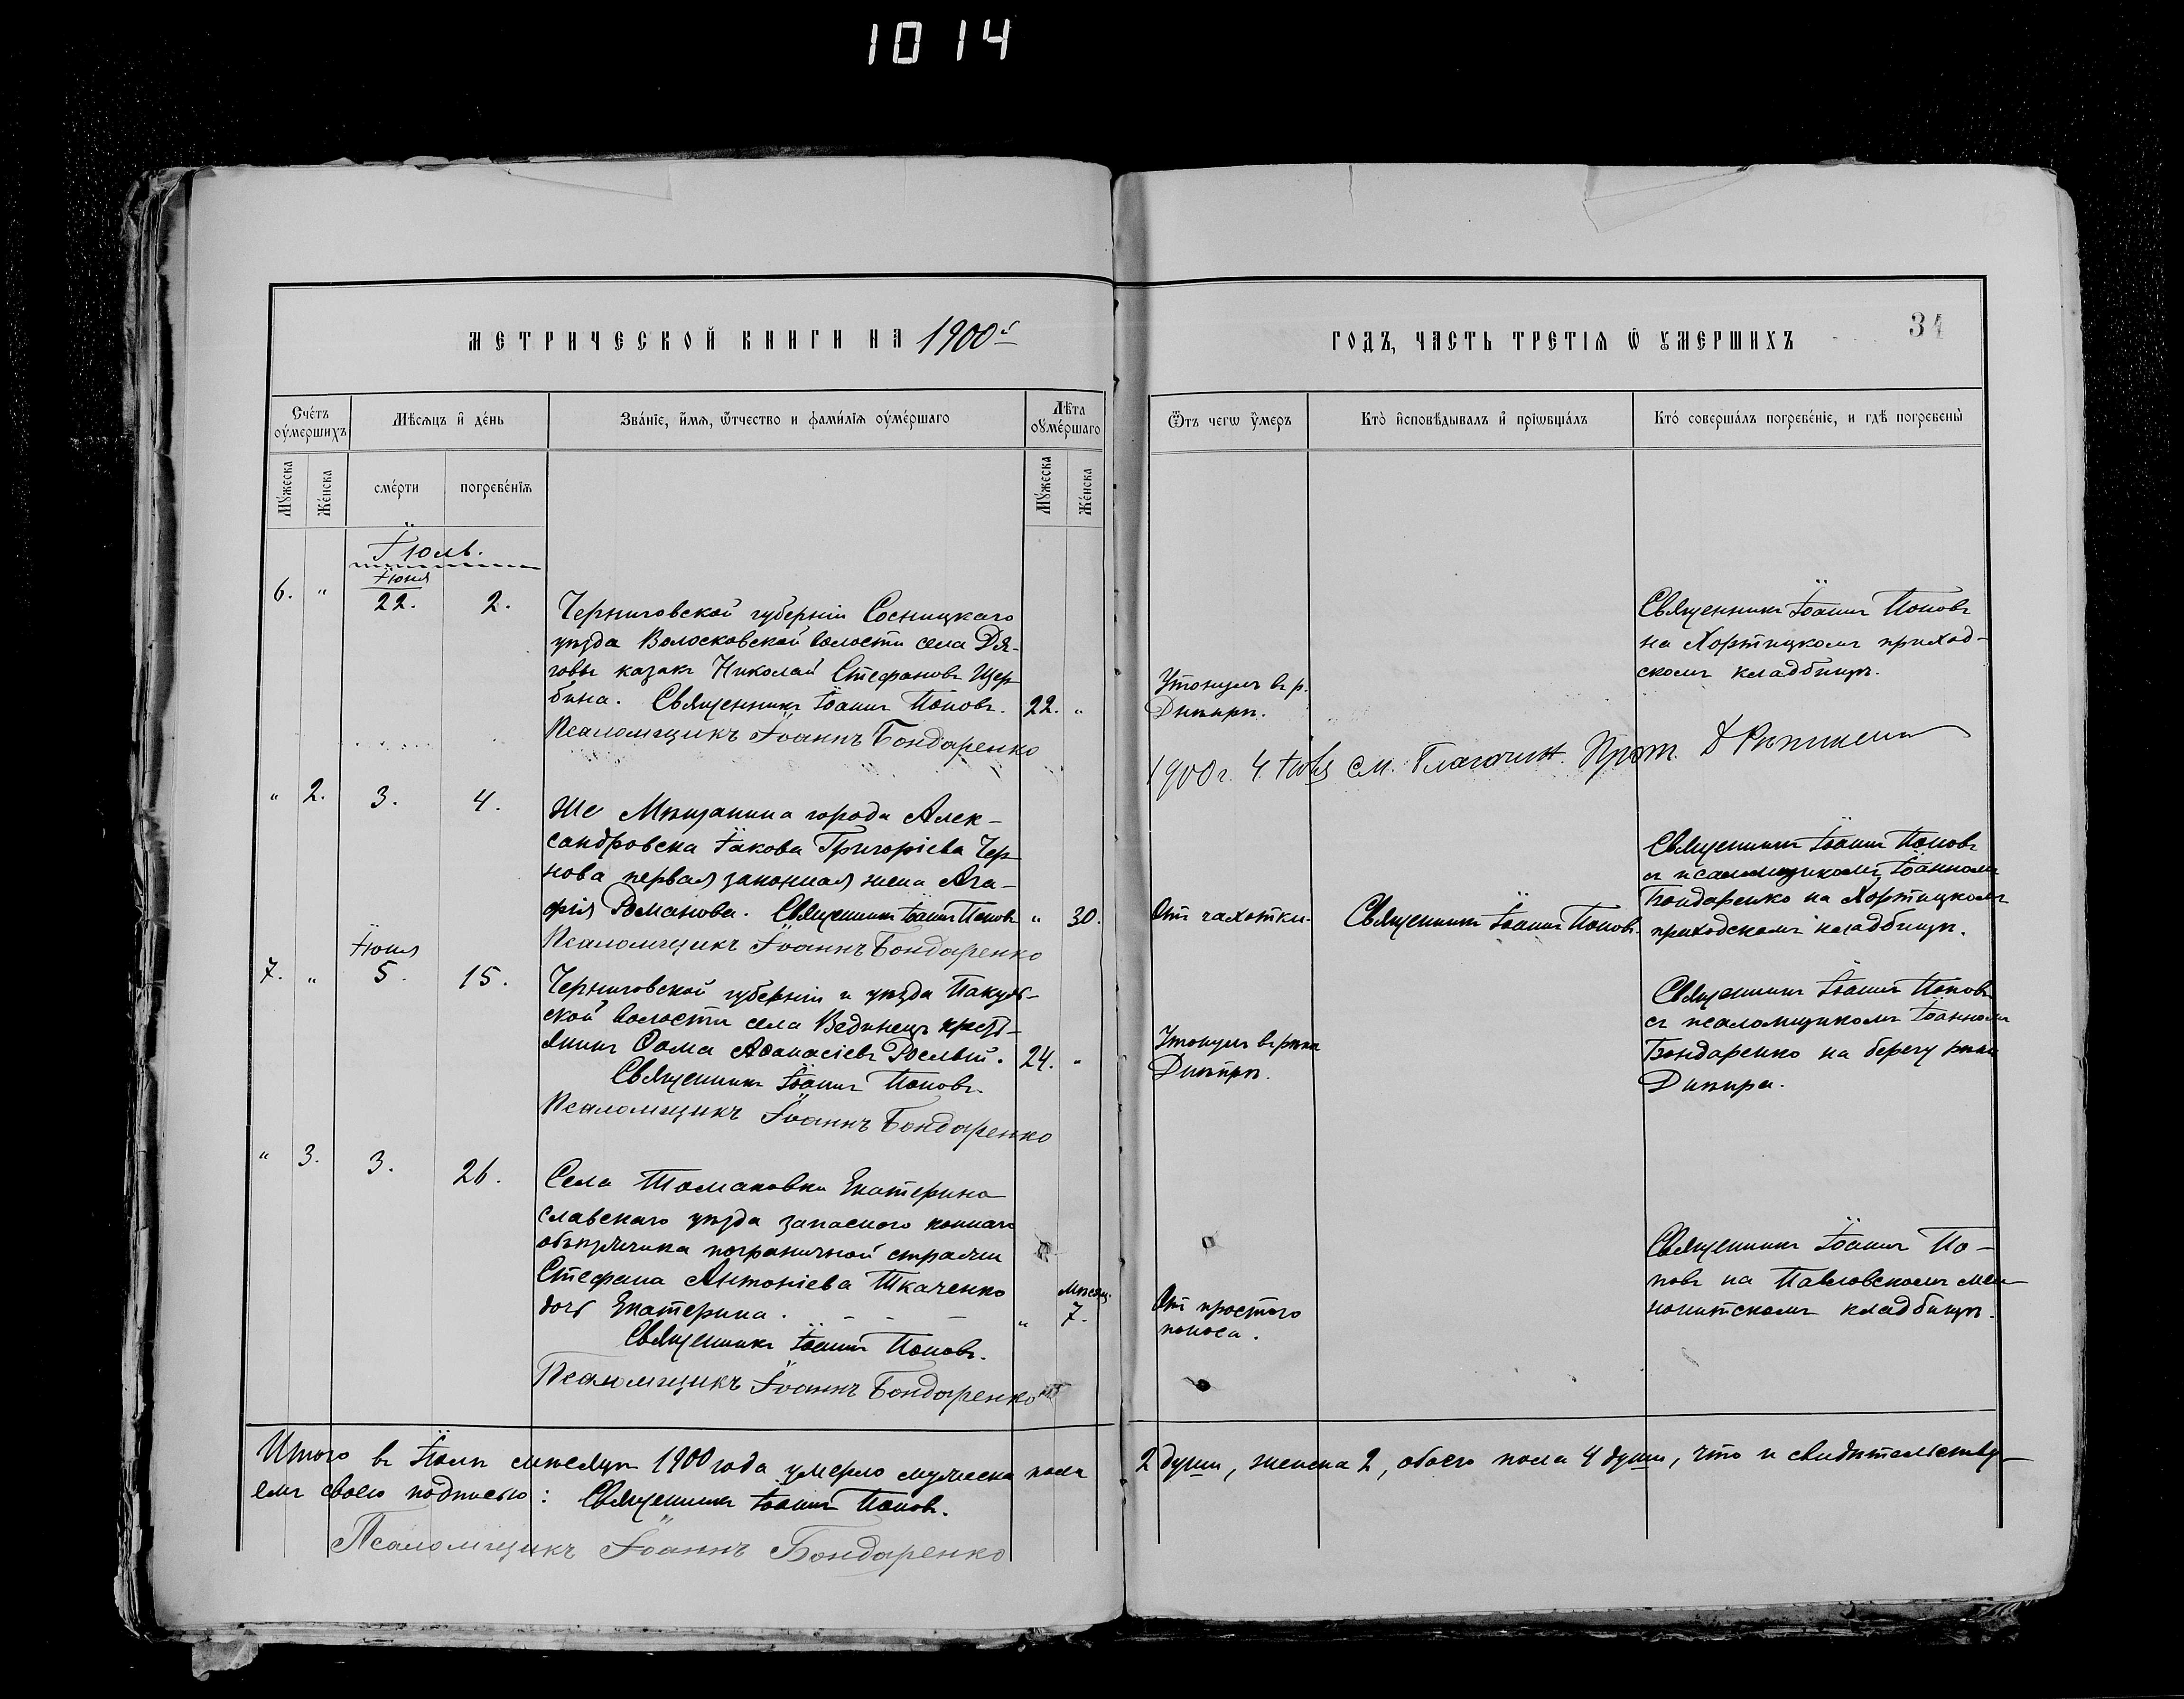 1014
МЕТРИЧЕСКОЙ КНИГИ НА 1900й
ГОДЪ, ЧАСТЬ ТРЕТІѦ Ѿ ОУМЕРШИХЪ
34
Сче́тъ оу́мершихъ
Мѣсѧцъ и҆ де́нь
Зва́нїе, и҆́мѧ, ѿтчество и фами́лїѧ оуме́ршаго
Лѣ́та оуме́ршаго
Ѿтъ чегѡ оу҆́меръ
Кто̀ и҆сповѣ́дывалъ и҆ прїѡбща́лъ
Кто́ соверша́лъ погребе́нїе, и гдѣ̀ погребены̀
Му́жеска
Же́нска
сме́рти
погребе́нїѧ
Му́жеска
Же́нска
Іюль.
6. " Іюня 22. 2.
Черниговской губерніи Сосницкаго
уѣзда Волосковской волости села Дя-
говы казакъ Николай Стефановъ Щер-
бина. Священникъ Іоаннъ Поповъ. 22. "
Псаломщикъ Іоаннъ Бондаренко
Утонулъ въ р.
Днѣпрѣ.
Священникъ Іоаннъ Поповъ
на Хортицкомъ приход-
скомъ кладбищѣ.
1900 г. 4 см. Прот.
" 2. 3. 4.
Мѣщанина города Алек-
сандровска Іакова Григоріева Чер-
нова первая законная жена Ага-
фія Романова. Священникъ Іоаннъ Поповъ " 30.
Псаломщикъ Іоаннъ Бондаренко
Отъ чахотки.
Священникъ Іоаннъ Поповъ.
Священникъ Іоаннъ Поповъ
съ псаломщикомъ Іоанномъ
Бондаренко на Хортицкомъ
приходскомъ кладбищѣ.
7. " Іюня 5. 15.
Черниговской губерніи и уѣзда Пакуль-
ской волости села Вединецъ кресть-
янинъ Ѳома Аѳанасіевъ Рослый. 24. "
Священникъ Іоаннъ Поповъ.
Псаломщикъ Іоаннъ Бондаренко
Утонулъ въ рѣкѣ
Днѣпрѣ.
Священникъ Іоаннъ Поповъ
съ псаломщикомъ Іоанномъ
Бондаренко на берегу рѣки
Днѣпра.
" 3. 3. 26.
Села Томаковки Екатерино
славскаго уѣзда запаснаго коннаго
объѣздчика пограничной стражи
Стефана Антоніева Ткаченко
дочь Екатерина. - - - " Мѣсяц. 7.
Священникъ Іоаннъ Поповъ.
Псаломщикъ Іоаннъ Бондаренко
Отъ простого
поноса.
Священникъ Іоаннъ По-
повъ на Павловскомъ мен-
нонитскомъ кладбищѣ.
Итого въ Іюлѣ мѣсяцѣ 1900 года умерло мужеска пола 2 души, женска 2, обоего пола 4 души, что и свидѣтельству-
емъ своею подписью: Священникъ Іоаннъ Поповъ.
Псаломщикъ Іоаннъ Бондаренко